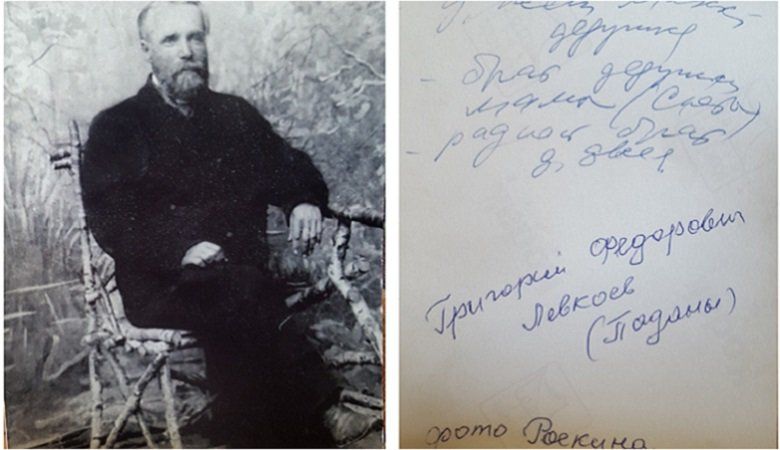 дедушка
- брат дедушки
мамы (Светы)
- родной брат
Григорий Федорович
Левкоев
(Паданы)
фото Роскина